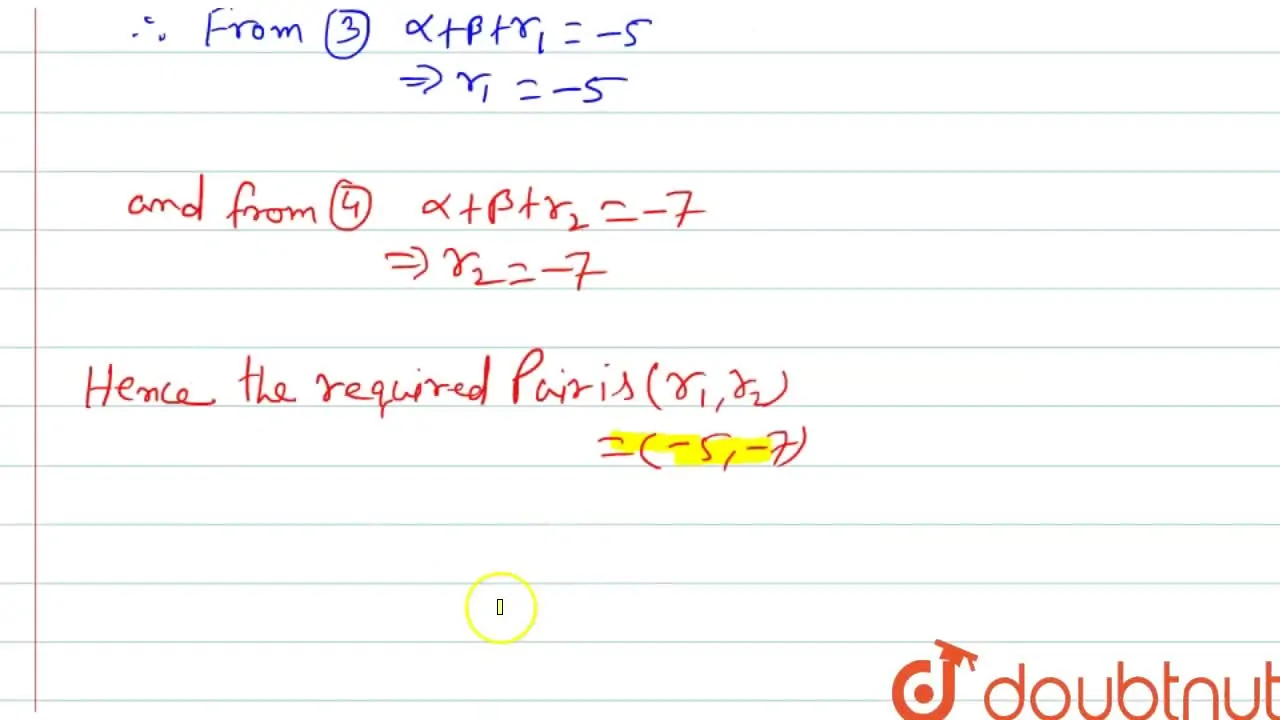 ∴ From ③ α+β+γ₁ = -5
⇒ γ₁ = -5
and from ④ α+β+γ₂ = -7
⇒ γ₂ = -7
Hence the required Pair is (γ₁, γ₂)
= (-5, -7)
doubtnut